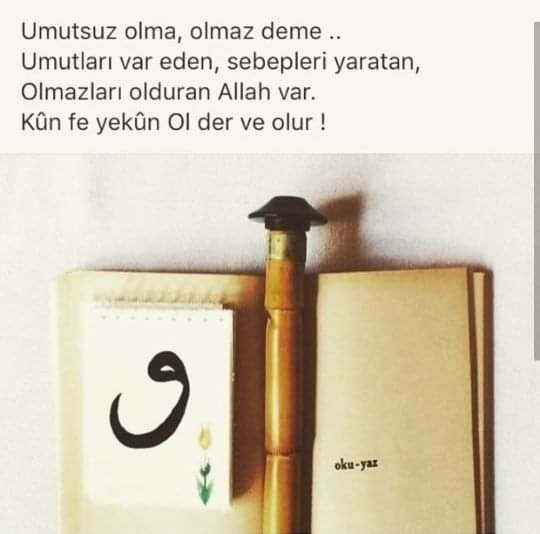 Umutsuz olma, olmaz deme ..
Umutları var eden, sebepleri yaratan,
Olmazları olduran Allah var.
Kûn fe yekûn Ol der ve olur !
و
oku-yaz